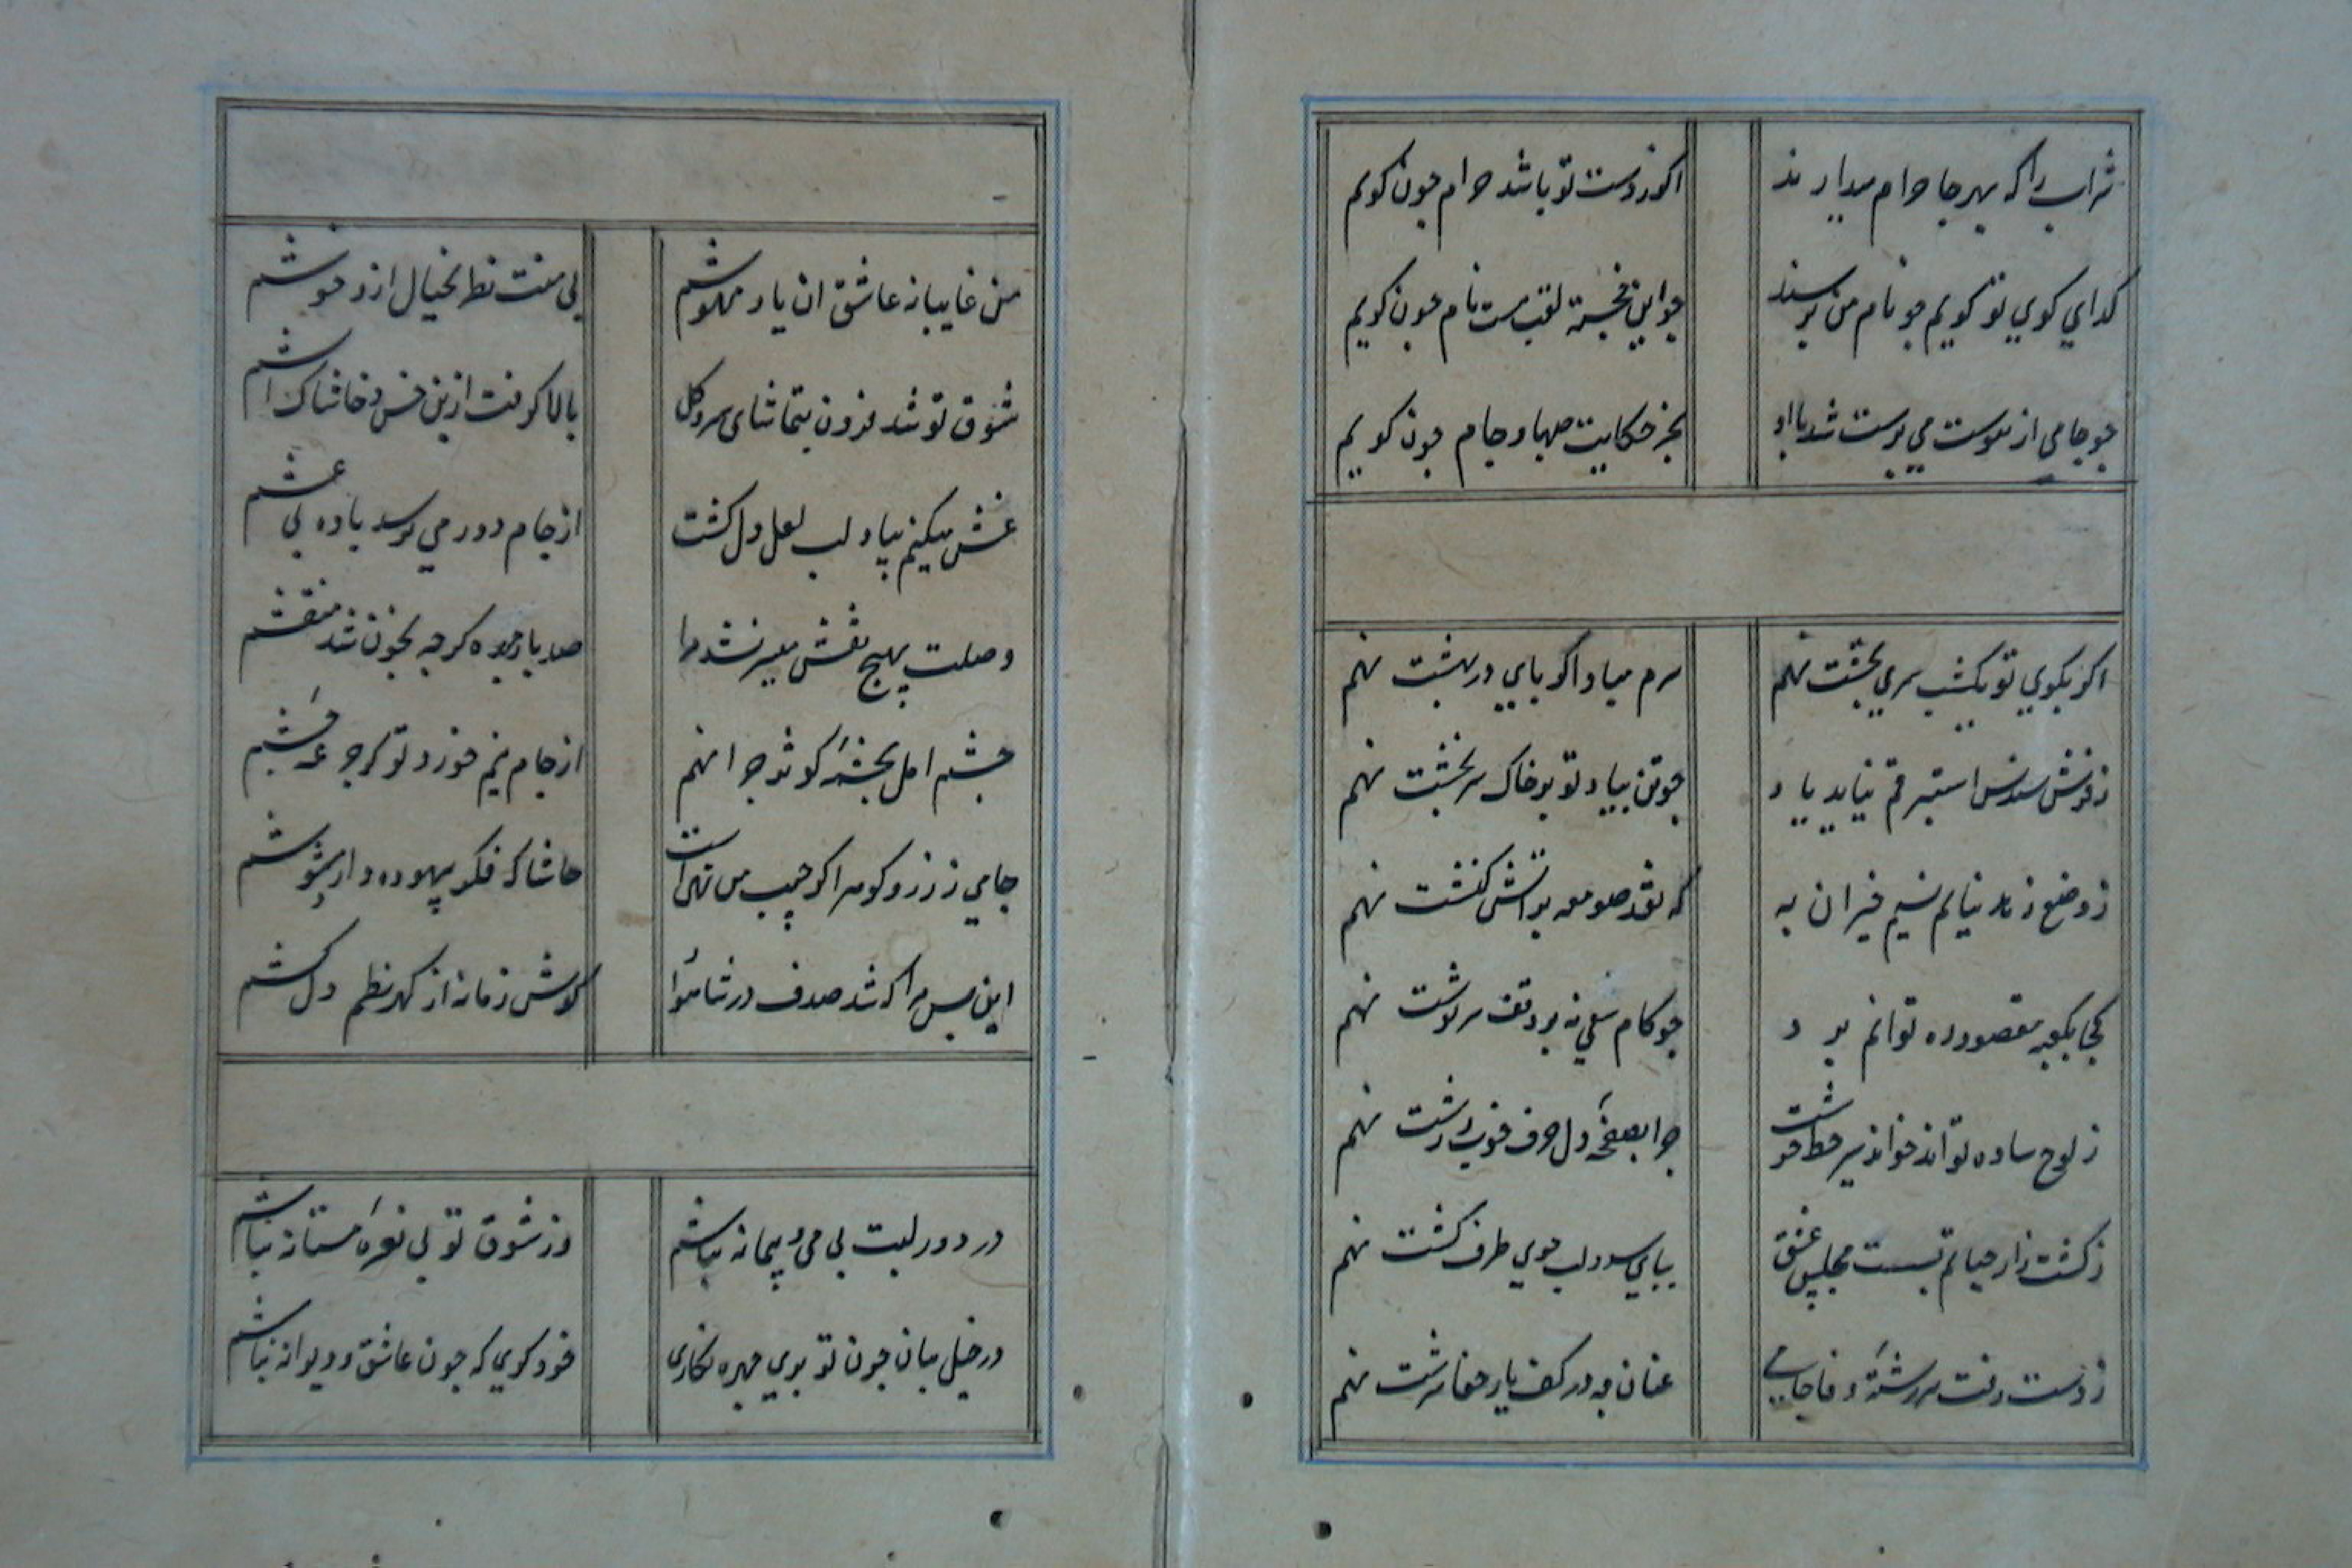 شراب را که بهر جا حرام میدارند
اکر زدست تو باشد حرام چون کویم
کدای کوي تو کویم چو نام من پرسند
چو این خجسته لقب هست نام چون کویم
چو جامی از هوست می پرست شد با او
بجز حکایت صهبا و جام چون کویم
اکر بکوي تو یکشب سري بخشت نهم
سرم مباد اکر پایي در بهشت نهم
ز فرش سندس استبرقم نیاید یاد
چو تن بیاد تو بر خاک سر بخشت نهم
ز وضع زهد نیایم نسیم خیر ان به
که نقد صومعه بر اتش کنشت نهم
کجا بکعبه مقصود ره توانم برد
چو کام سعی نه بر وفق سرنوشت نهم
ز لوح ساده تواند خواند سر خط خوشت
چرا بصفحهٔ دل حرف خوب و زشت نهم
ز کشت زار حیاتم بست مجلس عشق
بپاي سرو و لب جوي طرف کشت نهم
ز دست رفت سررشتهٔ وفا جامي
عنان چو در کف یار جفا سرشت نهم
من غایبانه عاشق ان یار مهوشم
بی منت نظر بخیال از و خوشم
شوق تو شد فزون بتماشای سرو کل
بالا کرفت ازین خس و خاشاک اتشم
غش میکنم بیاد لب لعل دل کشت
از جام دور می رسد باده بی غشم
وصلت بهیچ نقش میسر نشد مرا
صد بار چهره کرچه بخون شد منقشم
چشم امل بچشمهٔ کوثر چرا نهم
از جام نیم خورد تو کر جرعه چشم
جامي ز زر و کوهر اکر جیب من تهی است
حاشا که فکر بیهوده دارد مشوشم
این بس مرا که شد صدف در شاهوار
کوش زمانه از کهر نظم دل کشم
در دور لبت بی می و پیمانه نباشم
وز شوق تو بی نعرهٔ مستانه نباشم
در خیل بتان چون تو پري چهره نکاری
خود کوي که چون عاشق و دیوانه نباشم